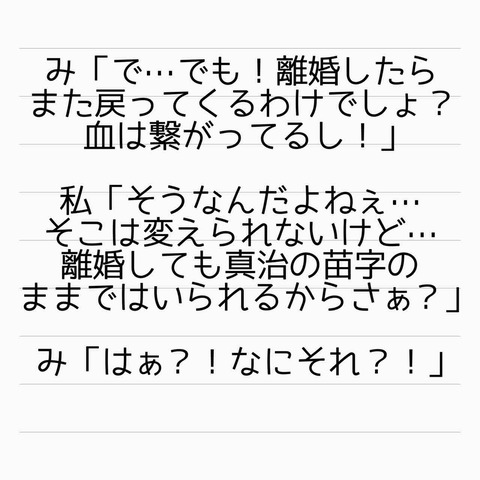 み「で…でも！離婚したら
また戻ってくるわけでしょ？
血は繋がってるし！」
私「そうなんだよねぇ…
そこは変えられないけど…
離婚しても真治の苗字の
ままではいられるからさぁ？」
み「はぁ？！なにそれ？！」